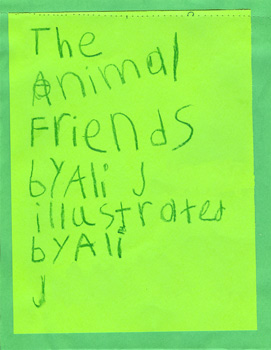 The
Animal
Friends
by Ali J
illustrated
by Ali
J